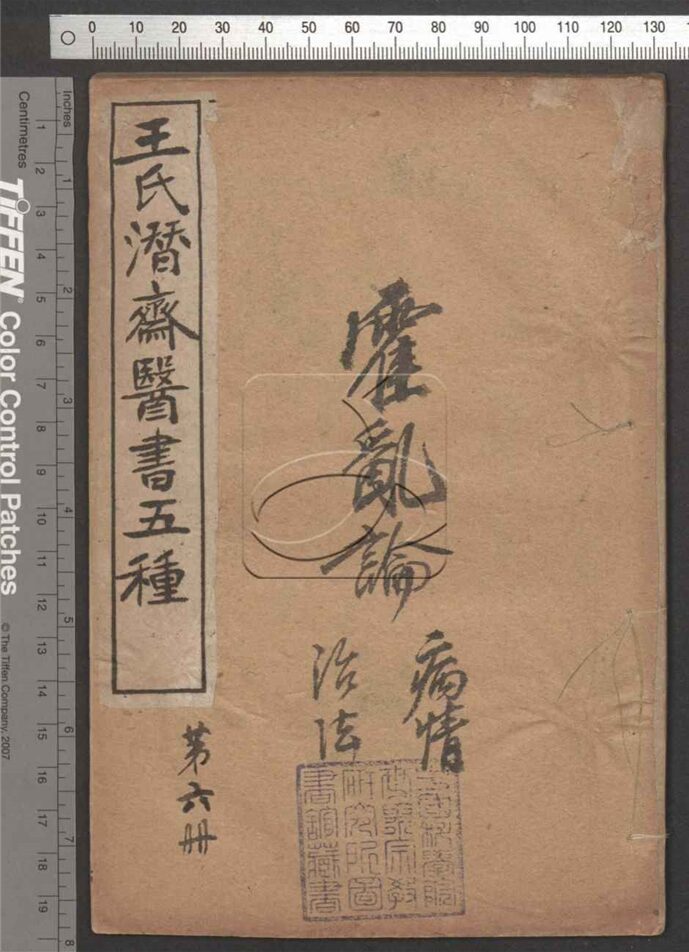 0 10 20 30 40 50 60 70 80 90 100 110 120 130
Inches
1 2 3 4 5 6 7 8
Centimetres
1 2 3 4 5 6 7 8 9 10 11 12 13 14 15 16 17 18 19
TIFFEN® Color Control Patches
© The Tiffen Company, 2007
霍亂論
病情
治法
王氏潛齋醫書五種
第六册
世界宗教
研究所圖
書館藏書